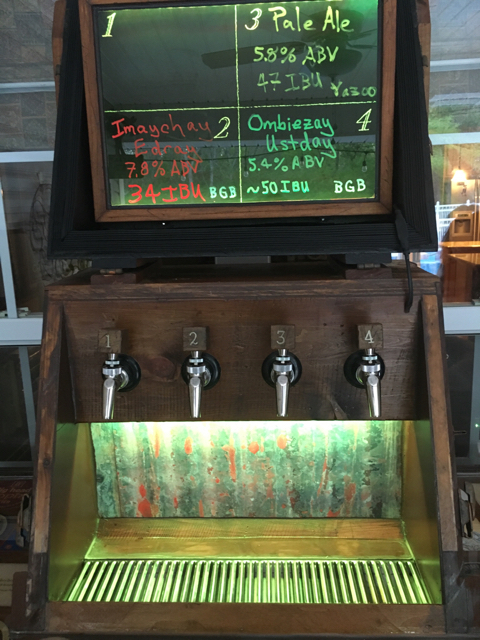 1
3 Pale Ale
5.8% ABV
47 IBU
Imaychay 2
Edray
7.8% ABV
34 IBU BGB
Ombiezay 4
Ustday
5.4% ABV
~50 IBU BGB
1 2 3 4